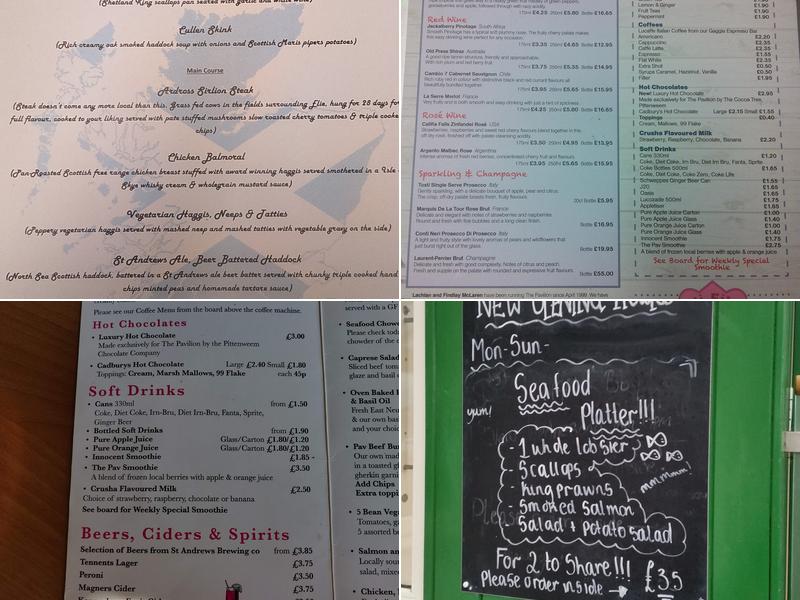 Shetland King scallops pan seared with garlic and white wine)
Cullen Skink
(Rich creamy oak smoked haddock soup with onions and Scottish Maris pipers potatoes)
Main Course
Ardross Sirlion Steak
(Steak doesn't come any more local than this. Grass fed cows in the fields surrounding Elie, hung for 28 days for
full flavour, cooked to your liking served with pate stuffed mushrooms slow roasted cherry tomatoes & triple cooke
chips)
Chicken Balmoral
(Pan-Roasted Scottish free range chicken breast stuffed with award winning haggis served smothered in a Isle
Skye whisky cream & wholegrain mustard sauce)
Vegetarian Haggis, Neeps & Tatties
(Peppery vegetarian haggis served with mashed neep and mashed tatties with vegetable gravy on the side)
St Andrews Ale, Beer Battered Haddock
(North Sea Scottish haddock, battered in a St Andrews ale beer batter served with chunky triple cooked hand
chips minted peas and homemade tartare sauce)
175ml £4.25 250ml £5.80 Bottle £16.65
Red Wine
Jackalberry Pinotage South Africa
175ml £3.35 250ml £4.65 Bottle £12.95
Old Press Shiraz Australia
With rich plum and red berry fruit
175ml £3.75 250ml £5.35 Bottle £14.95
Cambio 7 Cabernet Sauvignon Chile
Rich ruby red in colour with distinctive black and red currant flavours all
beautifully bundled together
175ml £3.95 250ml £5.65 Bottle £15.95
La Serre Merlot France
Very fruity and a both smooth and easy drinking with just a hint of spiciness
175ml £4.25 250ml £5.80 Bottle £16.65
Rosé Wine
Califia Falls Zinfandel Rosé USA
Strawberries, raspberries and sweet red cherry flavours blend together in this
off dry rosé, finished off with palate cleansing acidity
175ml £3.50 250ml £4.95 Bottle £13.95
Argento Malbec Rose Argentina
Intense aromas of fresh red berries, concentrated cherry fruit and flavours
175ml £3.95 250ml £5.65 Bottle £15.95
Sparkling & Champagne
Tosti Single Serve Prosecco Italy
Gently sparkling, with a delicate bouquet of apple, pear and citrus
The crisp, off-dry palate breaks fresh, fruity flavours
20cl Bottle £5.95
Marquis De La Tour Rose Brut France
Delicate and elegant with notes of strawberries and raspberries
Round and fresh with fine bubbles and a long clean finish
Bottle £16.95
Conti Neri Prosecco Di Prosecco Italy
A light and fruity style with lovely aromas of pears and wildflowers that
just burst right out of the glass
Bottle £19.95
Laurent-Perrier Brut Champagne
Delicate and fresh with good complexity. Notes of citrus and peach.
Fresh and supple on the palate with rounded and expressive fruit flavours
Bottle £55.00
Lachlan and Findlay McLaren have been running The Pavilion since April 1999. We have
Lemon & Ginger £1.90
Fruit Teas £1.90
Peppermint £1.90
Coffees
Lucaffe Italian Coffee from our Gaggia Espresso Bar
Americano £2.20
Cappuccino £2.35
Caffe Latte £2.35
Espresso £1.55
Flat White £2.35
Extra Shot £0.50
Syrups Caramel, Hazelnut, Vanilla £0.50
Filter £1.95
Hot Chocolates
New! Luxury Hot Chocolate £2.95
Made exclusively for The Pavilion by The Cocoa Tree,
Pittenweem
Cadbury's Hot Chocolate Large £2.15 Small £1.55
Toppings £0.40
Cream, Mallows, 99 Flake
Crusha Flavoured Milk
Strawberry, Raspberry, Chocolate, Banana £2.20
Soft Drinks
Cans 330ml £1.20
Coke, Diet Coke, Irn Bru, Diet Irn Bru, Fanta, Sprite
Coke Bottles 500ml £1.65
Coke, Diet Coke, Coke Zero, Coke Life
Schweppes Ginger Beer Can £1.55
J20 £1.65
Oasis £1.65
Lucozade 500ml £1.75
Ribena £1.65
Pure Apple Juice Carton £1.00
Pure Apple Juice Glass £1.40
Pure Orange Juice Carton £1.00
Pure Orange Juice Glass £1.40
Innocent Smoothie £1.75
The Pav Smoothie £2.75
A blend of frozen local berries with apple & orange juice
See Board for Weekly Special
Smoothie
Please see our Coffee Menu from the board above the coffee machine.
Hot Chocolates
• Luxury Hot Chocolate £3.00
Made exclusively for The Pavilion by the Pittenweem
Chocolate Company
• Cadburys Hot Chocolate Large £2.40 Small £1.80
Toppings: Cream, Marsh Mallows, 99 Flake each 45p
Soft Drinks
• Cans 330ml from £1.50
Coke, Diet Coke, Irn-Bru, Diet Irn-Bru, Fanta, Sprite,
Ginger Beer
• Bottled Soft Drinks from £1.90
• Pure Apple Juice Glass/Carton £1.80/£1.20
• Pure Orange Juice Glass/Carton £1.80/£1.20
• Innocent Smoothie £1.85
• The Pav Smoothie £3.50
A blend of frozen local berries with apple & orange juice
• Crusha Flavoured Milk £2.50
Choice of strawberry, raspberry, chocolate or banana
See board for Weekly Special Smoothie
Beers, Ciders & Spirits
Selection of Beers from St Andrews Brewing co from £3.85
Tennents Lager £3.75
Peroni £3.50
Magners Cider £3.75
served with a GF
• Seafood Chow
Please check toda
chowder of the d
• Caprese Salad
Sliced beef tom
glaze and basil
• Oven Baked
& Basil Oil
Fresh East Neu
& our own bas
and your choic
• Pav Beef Bu
Our own mad
in a toasted gl
gherkin garni
Add Chips
Extra toppi
• 5 Bean Veg
Tomatoes, ga
5 assorted be
• Salmon an
Locally sour
salad, mixe
• Chicken,
NEW OPENING HOURS
Mon-Sun-
Seafood
Platter!!!
yum!
- 1 whole lobster
- Scallops
- King prawns
- Smoked Salmon
- Salad + Potato salad
mmmmm!
For 2 to Share!!!
Please order inside → £35